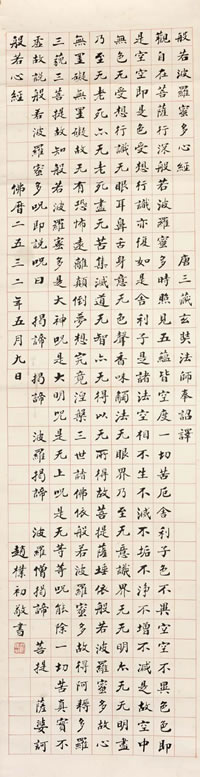 般若波羅蜜多心經　唐三藏玄奘法師奉詔譯
觀自在菩薩行深般若波羅蜜多時照見五蘊皆空度一切苦厄舍利子色不異空空不異色色即
是空空即是色受想行識亦復如是舍利子是諸法空相不生不滅不垢不淨不增不減是故空中
无色无受想行識无眼耳鼻舌身意无色聲香味觸法无眼界乃至无意識界无无明亦无无明盡
乃至无老死亦无老死盡无苦集滅道无智亦无得以无所得故菩提薩埵依般若波羅蜜多故心
無罣礙無罣礙故無有恐怖遠離顛倒夢想究竟涅槃三世諸佛依般若波羅蜜多故得阿耨多羅
三藐三菩提故知般若波羅蜜多是大神咒是大明咒是无上咒是无等等咒能除一切苦真實不
虛故說般若波羅蜜多咒即說咒曰　揭諦　揭諦　波羅揭諦　波羅僧揭諦　菩提　薩婆訶
般若心經　佛曆二五三二年五月九日　趙樸初敬書